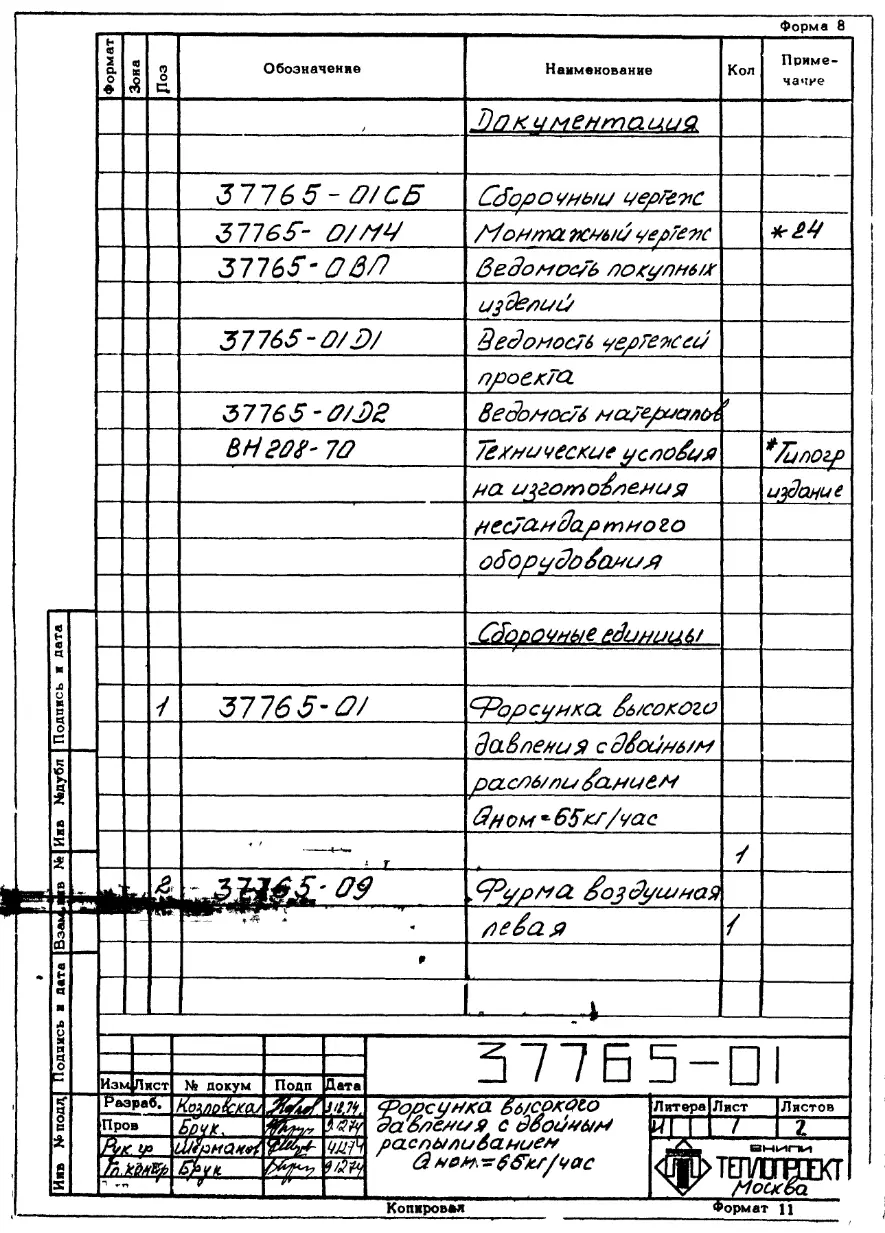 Форма 8
Формат Зона Поз Обозначение Наименование Кол Приме-
чание
Документация
37765-01СБ Сборочный чертеж
37765-01МЧ Монтажный чертеж *24
37765-0ВП Ведомость покупных
изделий
37765-01D1 Ведомость чертежей
проекта
37765-01D2 Ведомость материалов
ВН208-70 Технические условия *Типогр
на изготовления издание
нестандартного
оборудования
Сборочные единицы
1 37765-01 Форсунка высокого
давления с двойным
распыливанием
Qном=65кг/час
1
2 37765-09 Фурма воздушная
левая 1
Подпись и дата
Инв №дубл
Взам инв №
Подпись и дата
Инв № подл
37765-01
Изм Лист № докум Подп Дата
Разраб. Козловская
Пров Брук.
Рук гр Шерманов
Гл.констр Брук
Форсунка высокого
давления с двойным
распыливанием
Qном.=65кг/час
Литера Лист Листов
И 1 2
ВНИПИ
ТЕПЛОПРОЕКТ
Москва
Копировал Формат 11